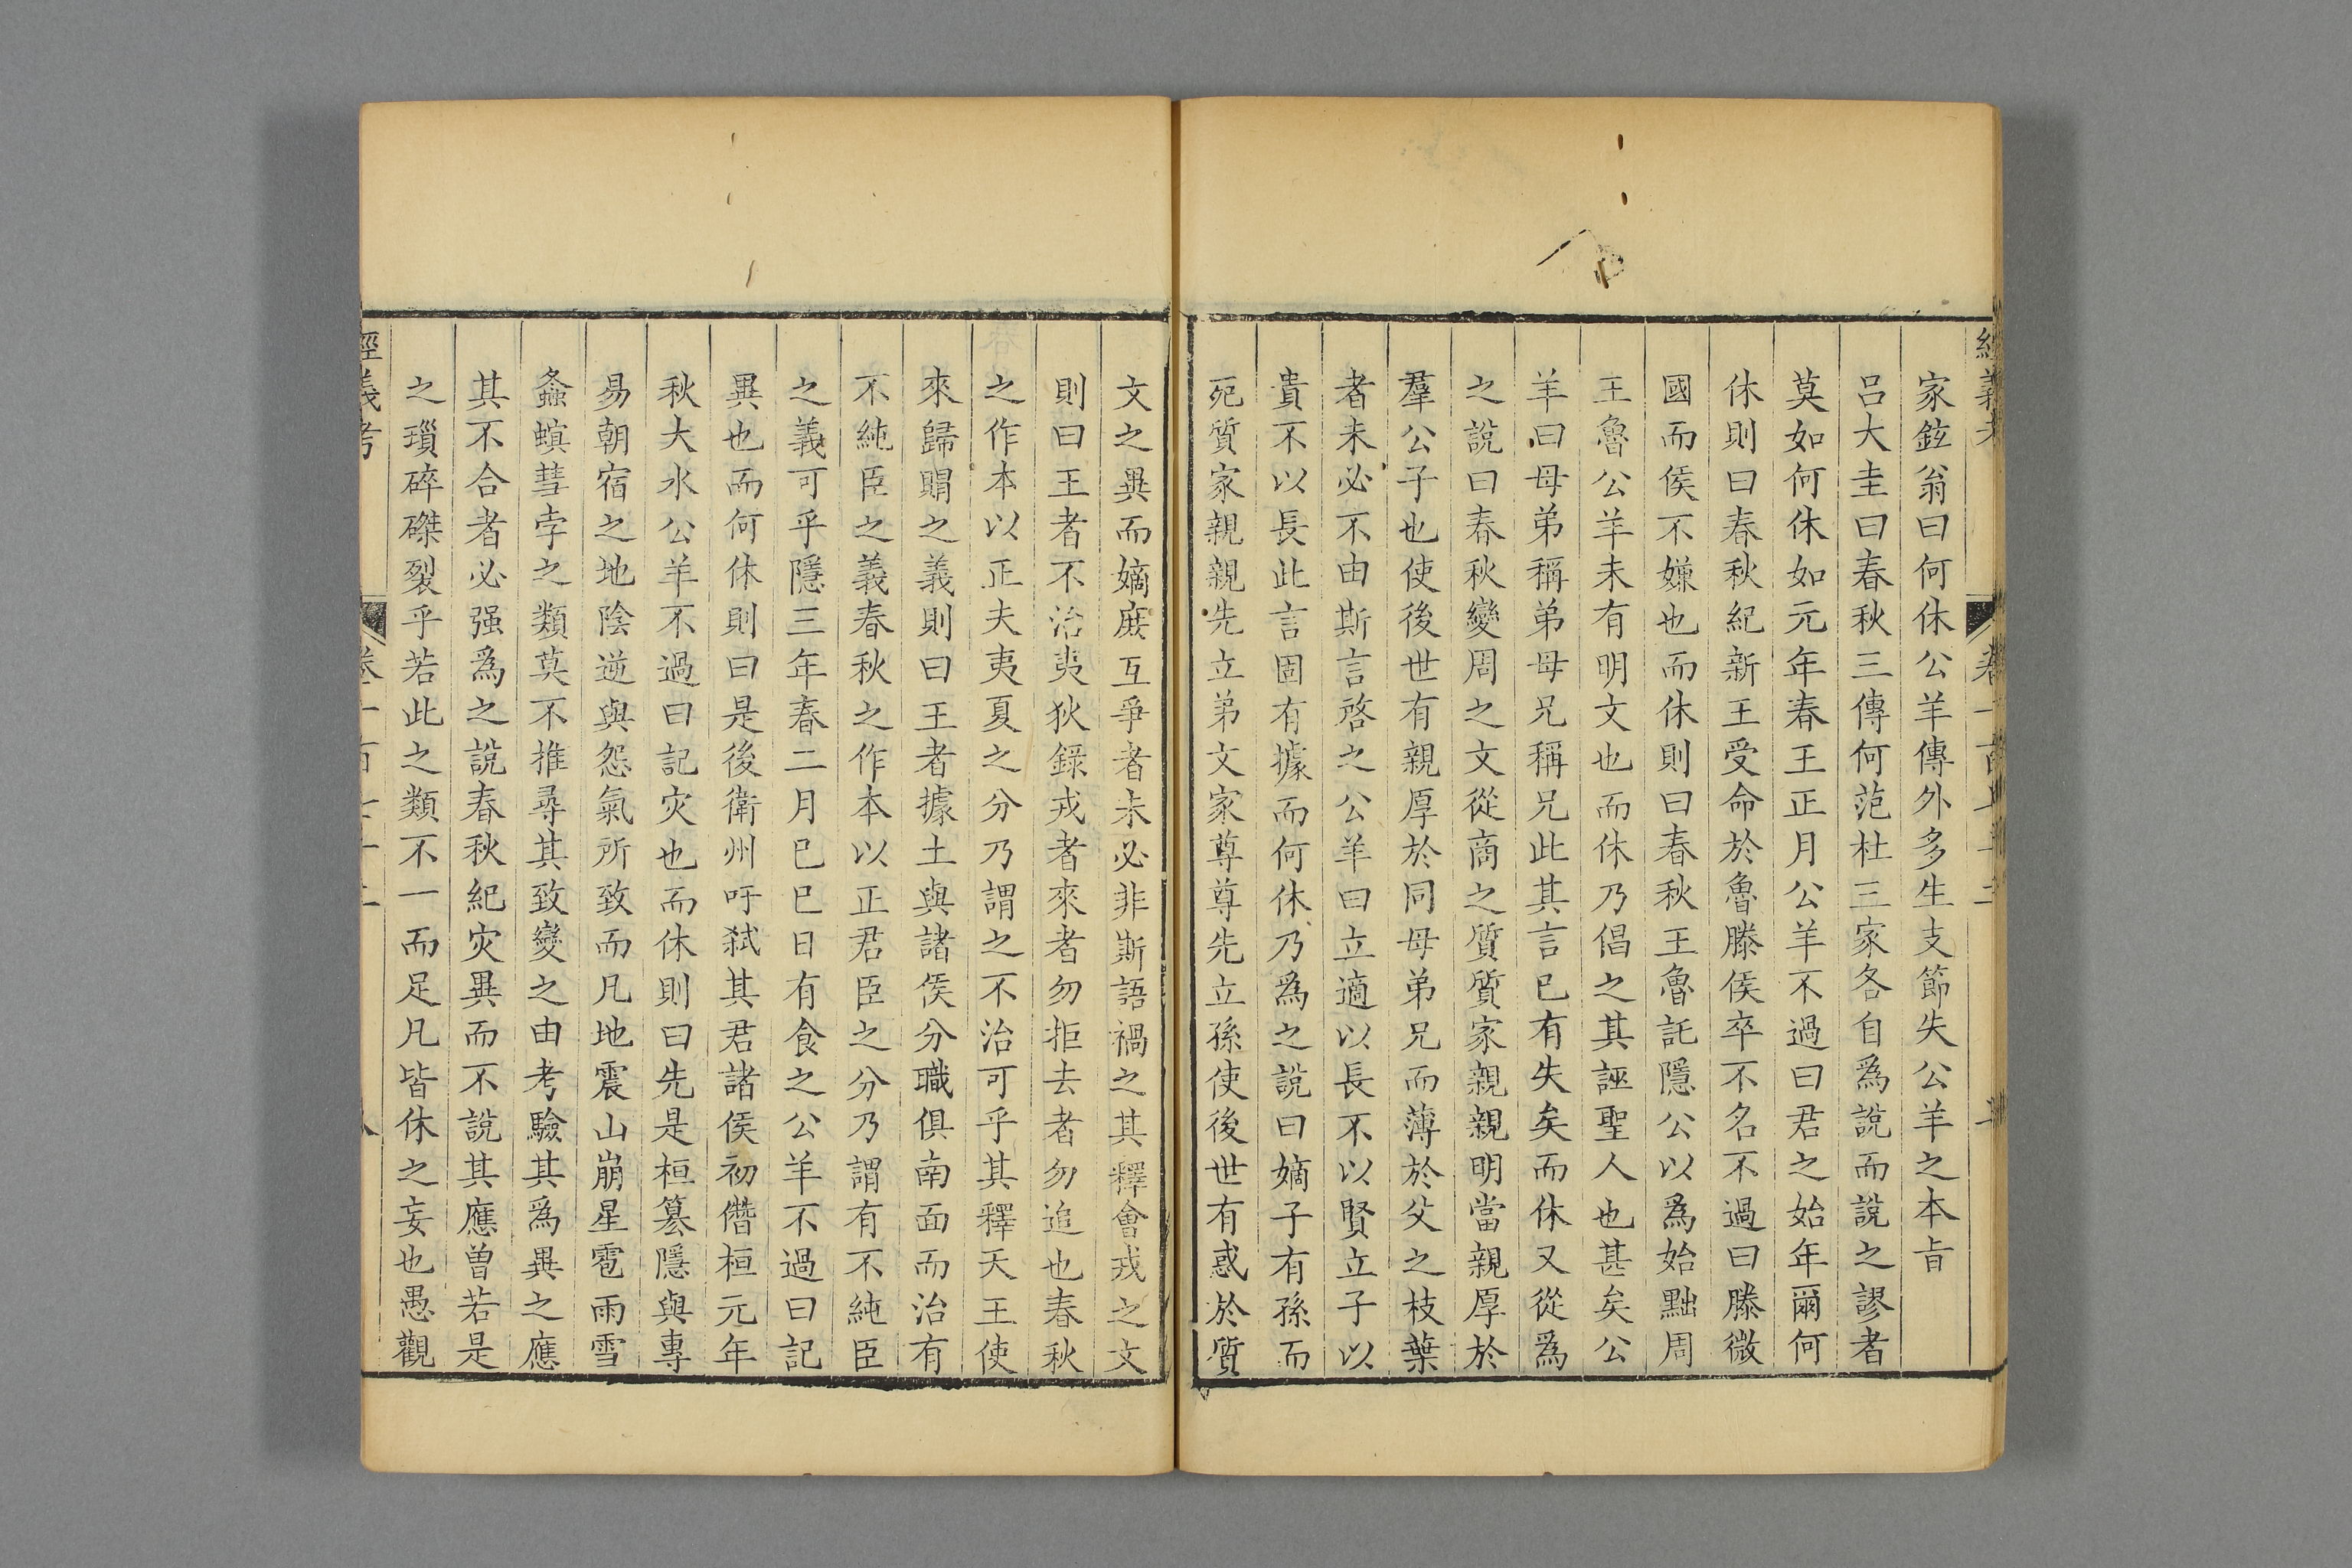 家鉉翁曰何休公羊傳外多生支節失公羊之本旨
呂大圭曰春秋三傳何范杜三家各自爲說而說之謬者
莫如何休如元年春王正月公羊不過曰君之始年爾何
休則曰春秋紀新王受命於魯滕侯卒不名不過曰滕微
國而侯不嫌也而休則曰春秋王魯託隱公以爲始黜周
王魯公羊未有明文也而休乃倡之其誣聖人也甚矣公
羊曰母弟稱弟母兄稱兄此其言已有失矣而休又從爲
之說曰春秋變周之文從商之質質家親親明當親厚於
羣公子也使後世有親厚於同母弟兄而薄於父之枝葉
者未必不由斯言啓之公羊曰立適以長不以賢立子以
貴不以長此言固有據而何休乃爲之說曰嫡子有孫而
死質家親親先立弟文家尊尊先立孫使後世有惑於質
文之異而嫡庶互爭者未必非斯語禍之其釋會戎之文
則曰王者不治夷狄錄戎者來者勿拒去者勿追也春秋
之作本以正夫夷夏之分乃謂之不治可乎其釋天王使
來歸賵之義則曰王者據土與諸侯分職俱南面而治有
不純臣之義春秋之作本以正君臣之分乃謂有不純臣
之義可乎隱三年春二月已巳日有食之公羊不過曰記
異也而何休則曰是後衛州吁弒其君諸侯初僭桓元年
秋大水公羊不過曰記灾也而休則曰先是桓簒隱與專
易朝宿之地陰逆與怨氣所致而凡地震山崩星雹雨雪
螽螟彗孛之類莫不推尋其致變之由考驗其爲異之應
其不合者必强爲之說春秋紀灾異而不說其應曽若是
之瑣碎磔裂乎若此之類不一而足凡皆休之妄也愚觀
經義考